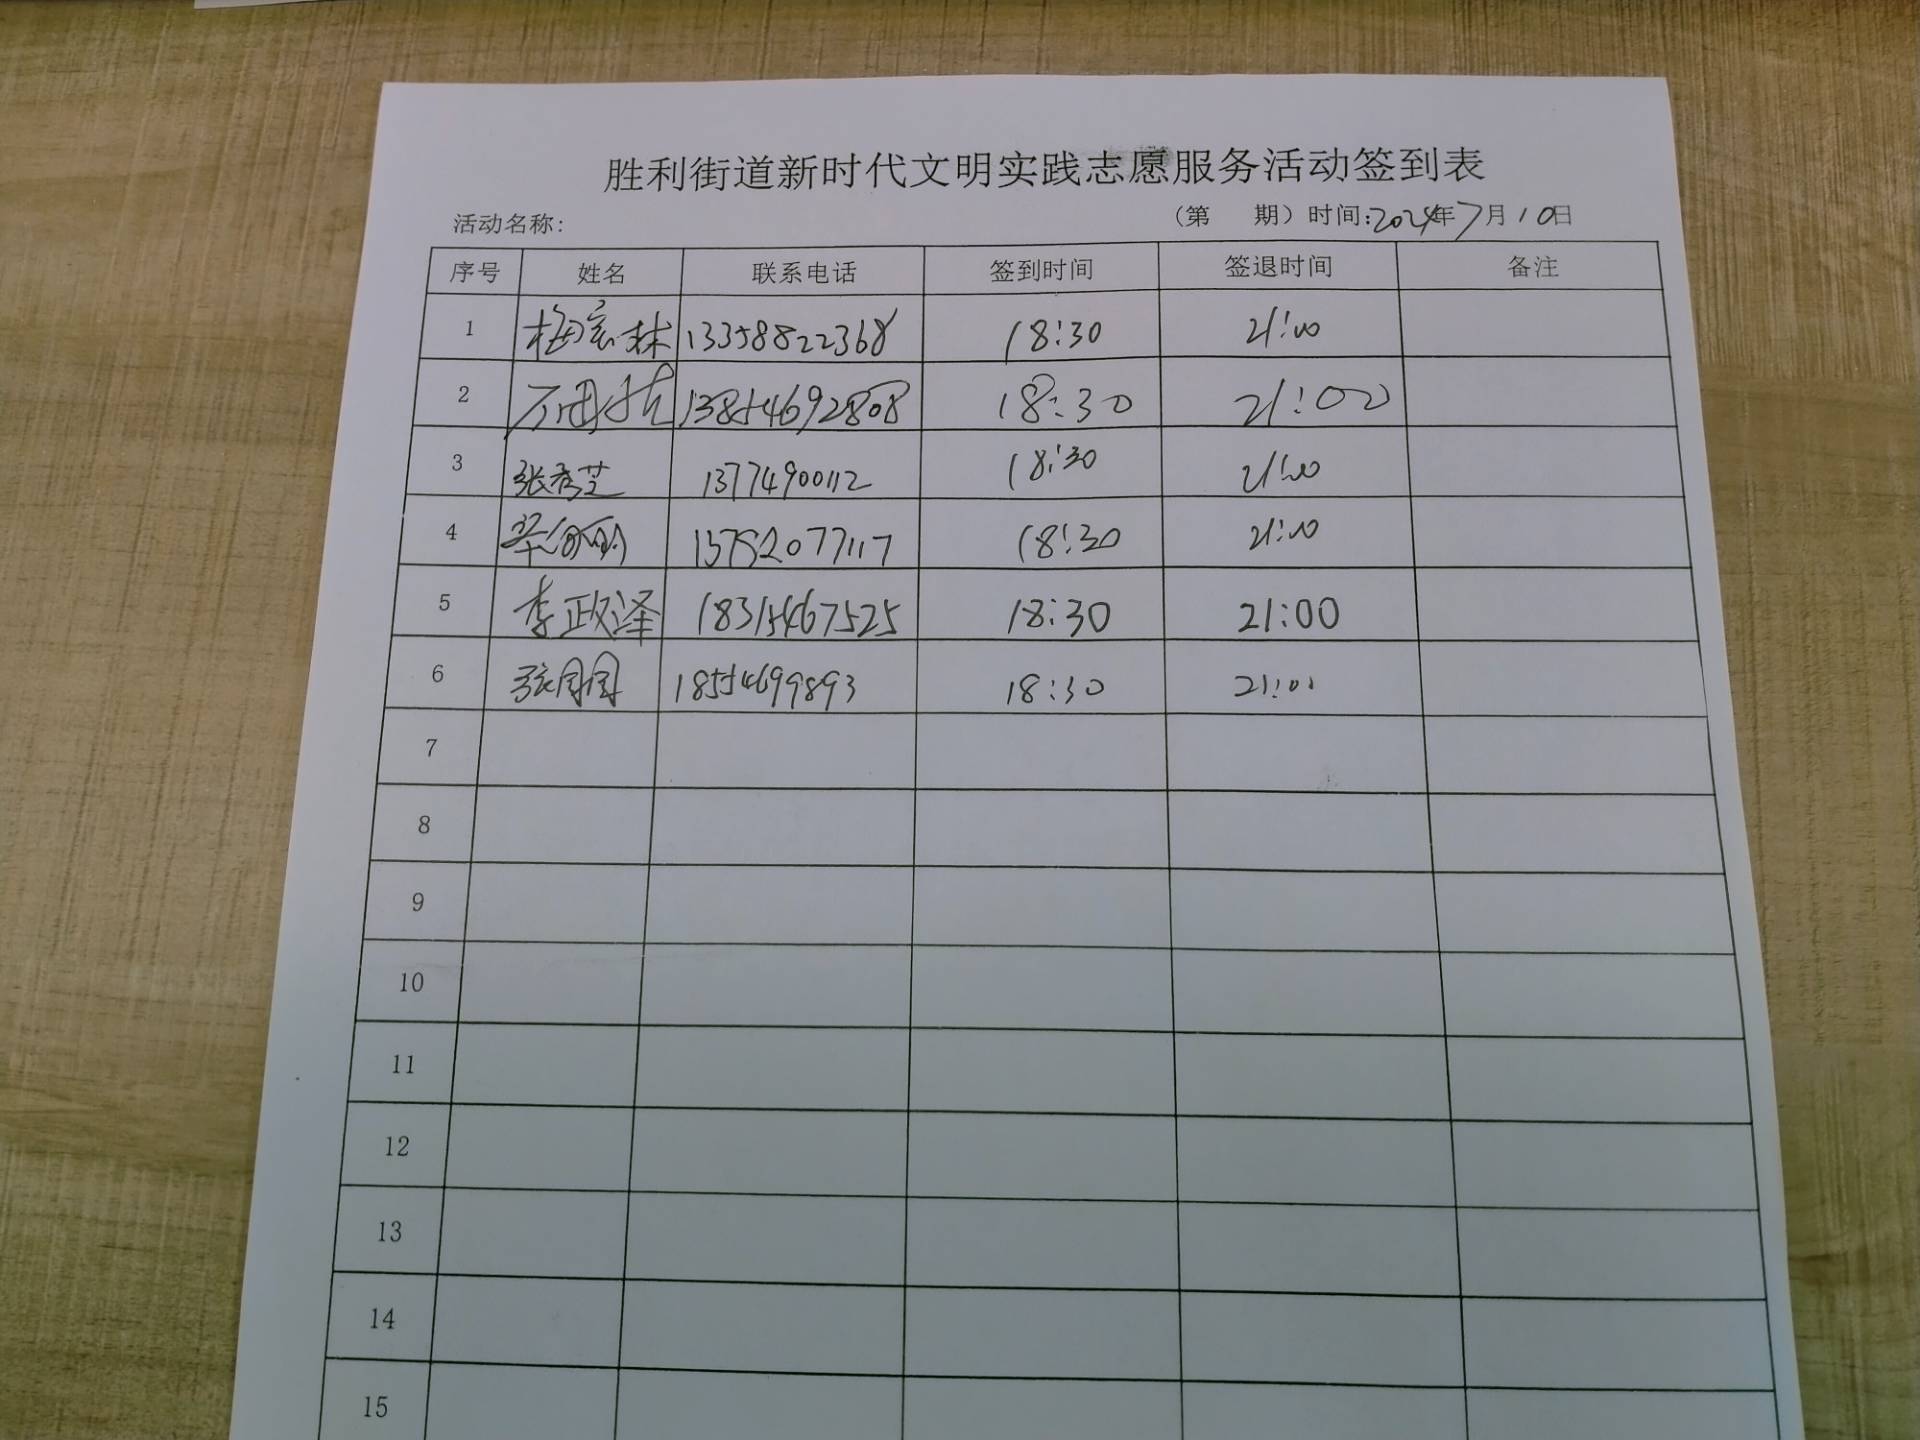 胜利街道新时代文明实践志愿服务活动签到表
活动名称: （第 期）时间:2024年7月10日
序号 姓名 联系电话 签到时间 签退时间 备注
1 梅宏林 13358822368 18:30 21:00
2 13854692808 18:30 21:00
3 张秀芝 13774900112 18:30 21:00
4 18:30 21:00
5 李政泽 18315467525 18:30 21:00
6 张园园 18554699893 18:30 21:00
7
8
9
10
11
12
13
14
15